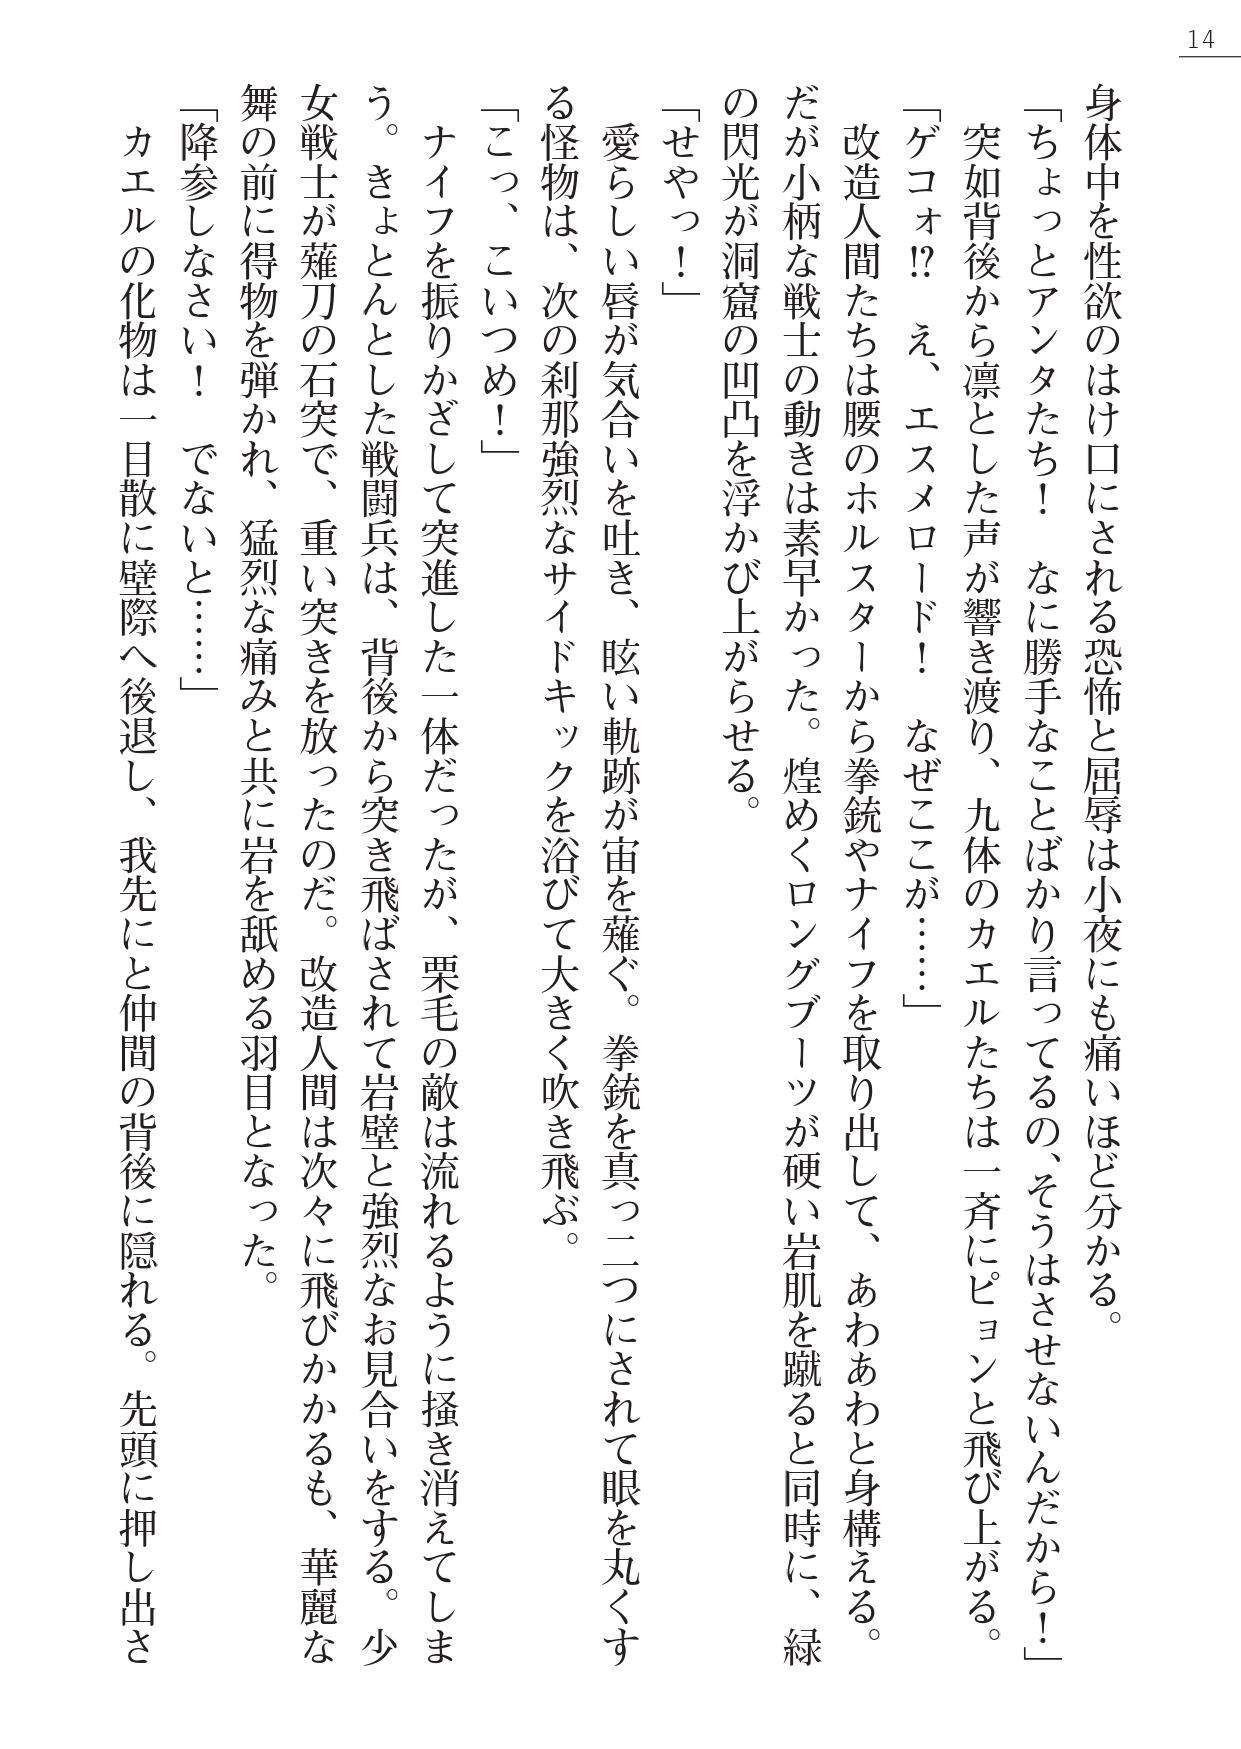 14
身体中を性欲のはけ口にされる恐怖と屈辱は小夜にも痛いほど分かる。
「ちょっとアンタたち！　なに勝手なことばかり言ってるの、そうはさせないんだから！」
　突如背後から凛とした声が響き渡り、九体のカエルたちは一斉にピョンと飛び上がる。
「ゲコォ⁉　え、エスメロード！　なぜここが……」
　改造人間たちは腰のホルスターから拳銃やナイフを取り出して、あわあわと身構える。
だが小柄な戦士の動きは素早かった。煌めくロングブーツが硬い岩肌を蹴ると同時に、緑
の閃光が洞窟の凹凸を浮かび上がらせる。
「せやっ！」
　愛らしい唇が気合いを吐き、眩い軌跡が宙を薙ぐ。拳銃を真っ二つにされて眼を丸くす
る怪物は、次の刹那強烈なサイドキックを浴びて大きく吹き飛ぶ。
「こっ、こいつめ！」
　ナイフを振りかざして突進した一体だったが、栗毛の敵は流れるように掻き消えてしま
う。きょとんとした戦闘兵は、背後から突き飛ばされて岩壁と強烈なお見合いをする。少
女戦士が薙刀の石突で、重い突きを放ったのだ。改造人間は次々に飛びかかるも、華麗な
舞の前に得物を弾かれ、猛烈な痛みと共に岩を舐める羽目となった。
「降参しなさい！　でないと……」
　カエルの化物は一目散に壁際へ後退し、我先にと仲間の背後に隠れる。先頭に押し出さ